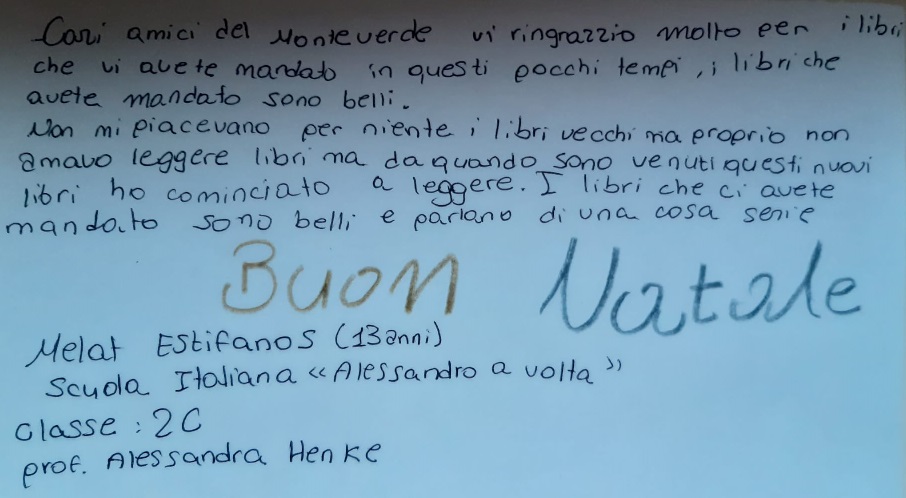 Cari amici del Monteverde vi ringrazzio molto per i libri
che vi avete mandato in questi pocchi tempi, i libri che
avete mandato sono belli.
Non mi piacevano per niente i libri vecchi ma proprio non
amavo leggere libri ma da quando sono venuti questi nuovi
libri ho cominciato a leggere. I libri che ci avete
mandato sono belli e parlano di una cosa serie
Buon Natale
Melat Estifanos (13 anni)
Scuola Italiana «Alessandro a volta»
Classe : 2C
prof. Alessandra Henke